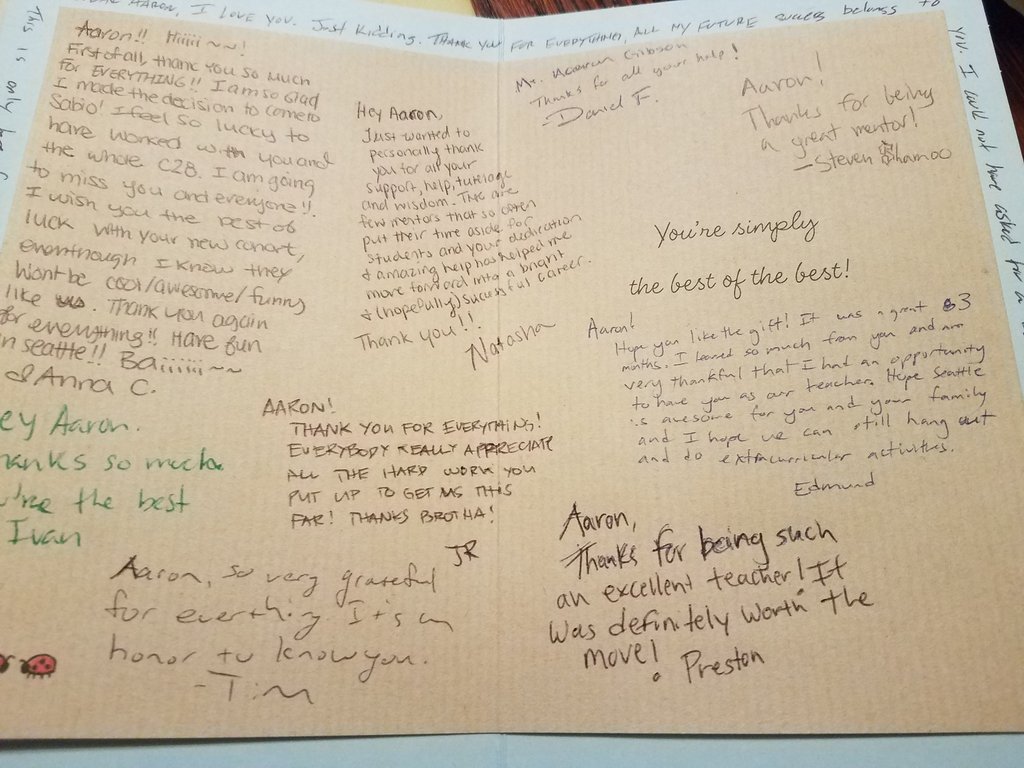 AARON, I LOVE YOU. Just Kidding. THANK YOU FOR EVERYTHING, ALL MY FUTURE success belongs to
you. I could not have asked for a
This is only
Aaron!! Hiiiii~~!
First of all, thank you so much
for EVERYTHING!! I am so glad
I made the decision to come to
Sabio! I feel so lucky to
have worked with you and
the whole C28. I am going
to miss you and everyone!!
I wish you the best of
luck with your new cohort,
eventhough I know they
wont be cool/awesome/funny
like us. Thank you again
for everything!! Have fun
in seattle!! Baiiiiii~~
Anna C.
Hey Aaron,
Just wanted to
personally thank
you for all your
support, help, tutelage
and wisdom. There are
few mentors that so often
put their time aside for
students and your dedication
& amazing help has helped me
move forward into a bright
& (hopefully) successful career.
Thank you!!
Natasha
Mr. Aaron Gibson
Thanks for all your help!
-Daniel F.
Aaron!
Thanks for being
a great mentor!
-Steven
You're simply
the best of the best!
Aaron!
Hope you like the gift! It was a great 3
months. I learned so much from you and am
very thankful that I had an opportunity
to have you as our teacher. Hope Seattle
is awesome for you and your family
and I hope we can still hang out
and do extracurricular activities.
Edmund
ey Aaron.
anks so much.
the best
Ivan
AARON!
THANK YOU FOR EVERYTHING!
EVERYBODY REALLY APPRECIATE
ALL THE HARD WORK YOU
PUT UP TO GET US THIS
FAR! THANKS BROTHA!
JR
Aaron, so very grateful
for everthing. It's an
honor to know you.
-Tim
Aaron,
Thanks for being such
an excellent teacher! It
was definitely worth the
move!
Preston